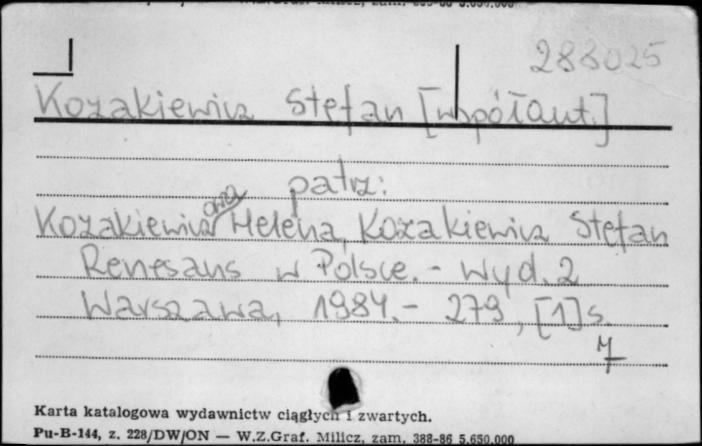 288025
Kozakiewicz Stefan [współaut.]
patrz:
Kozakiewicz Helena, Kozakiewicz Stefan
Renesans w Polsce. - Wyd. 2
Warszawa, 1984. - 279, [1] s.
Karta katalogowa wydawnictw ciągłych i zwartych.
Pu-B-144, z. 228/DW/ON — W.Z.Graf. Milicz, zam. 388-86 5.650.000